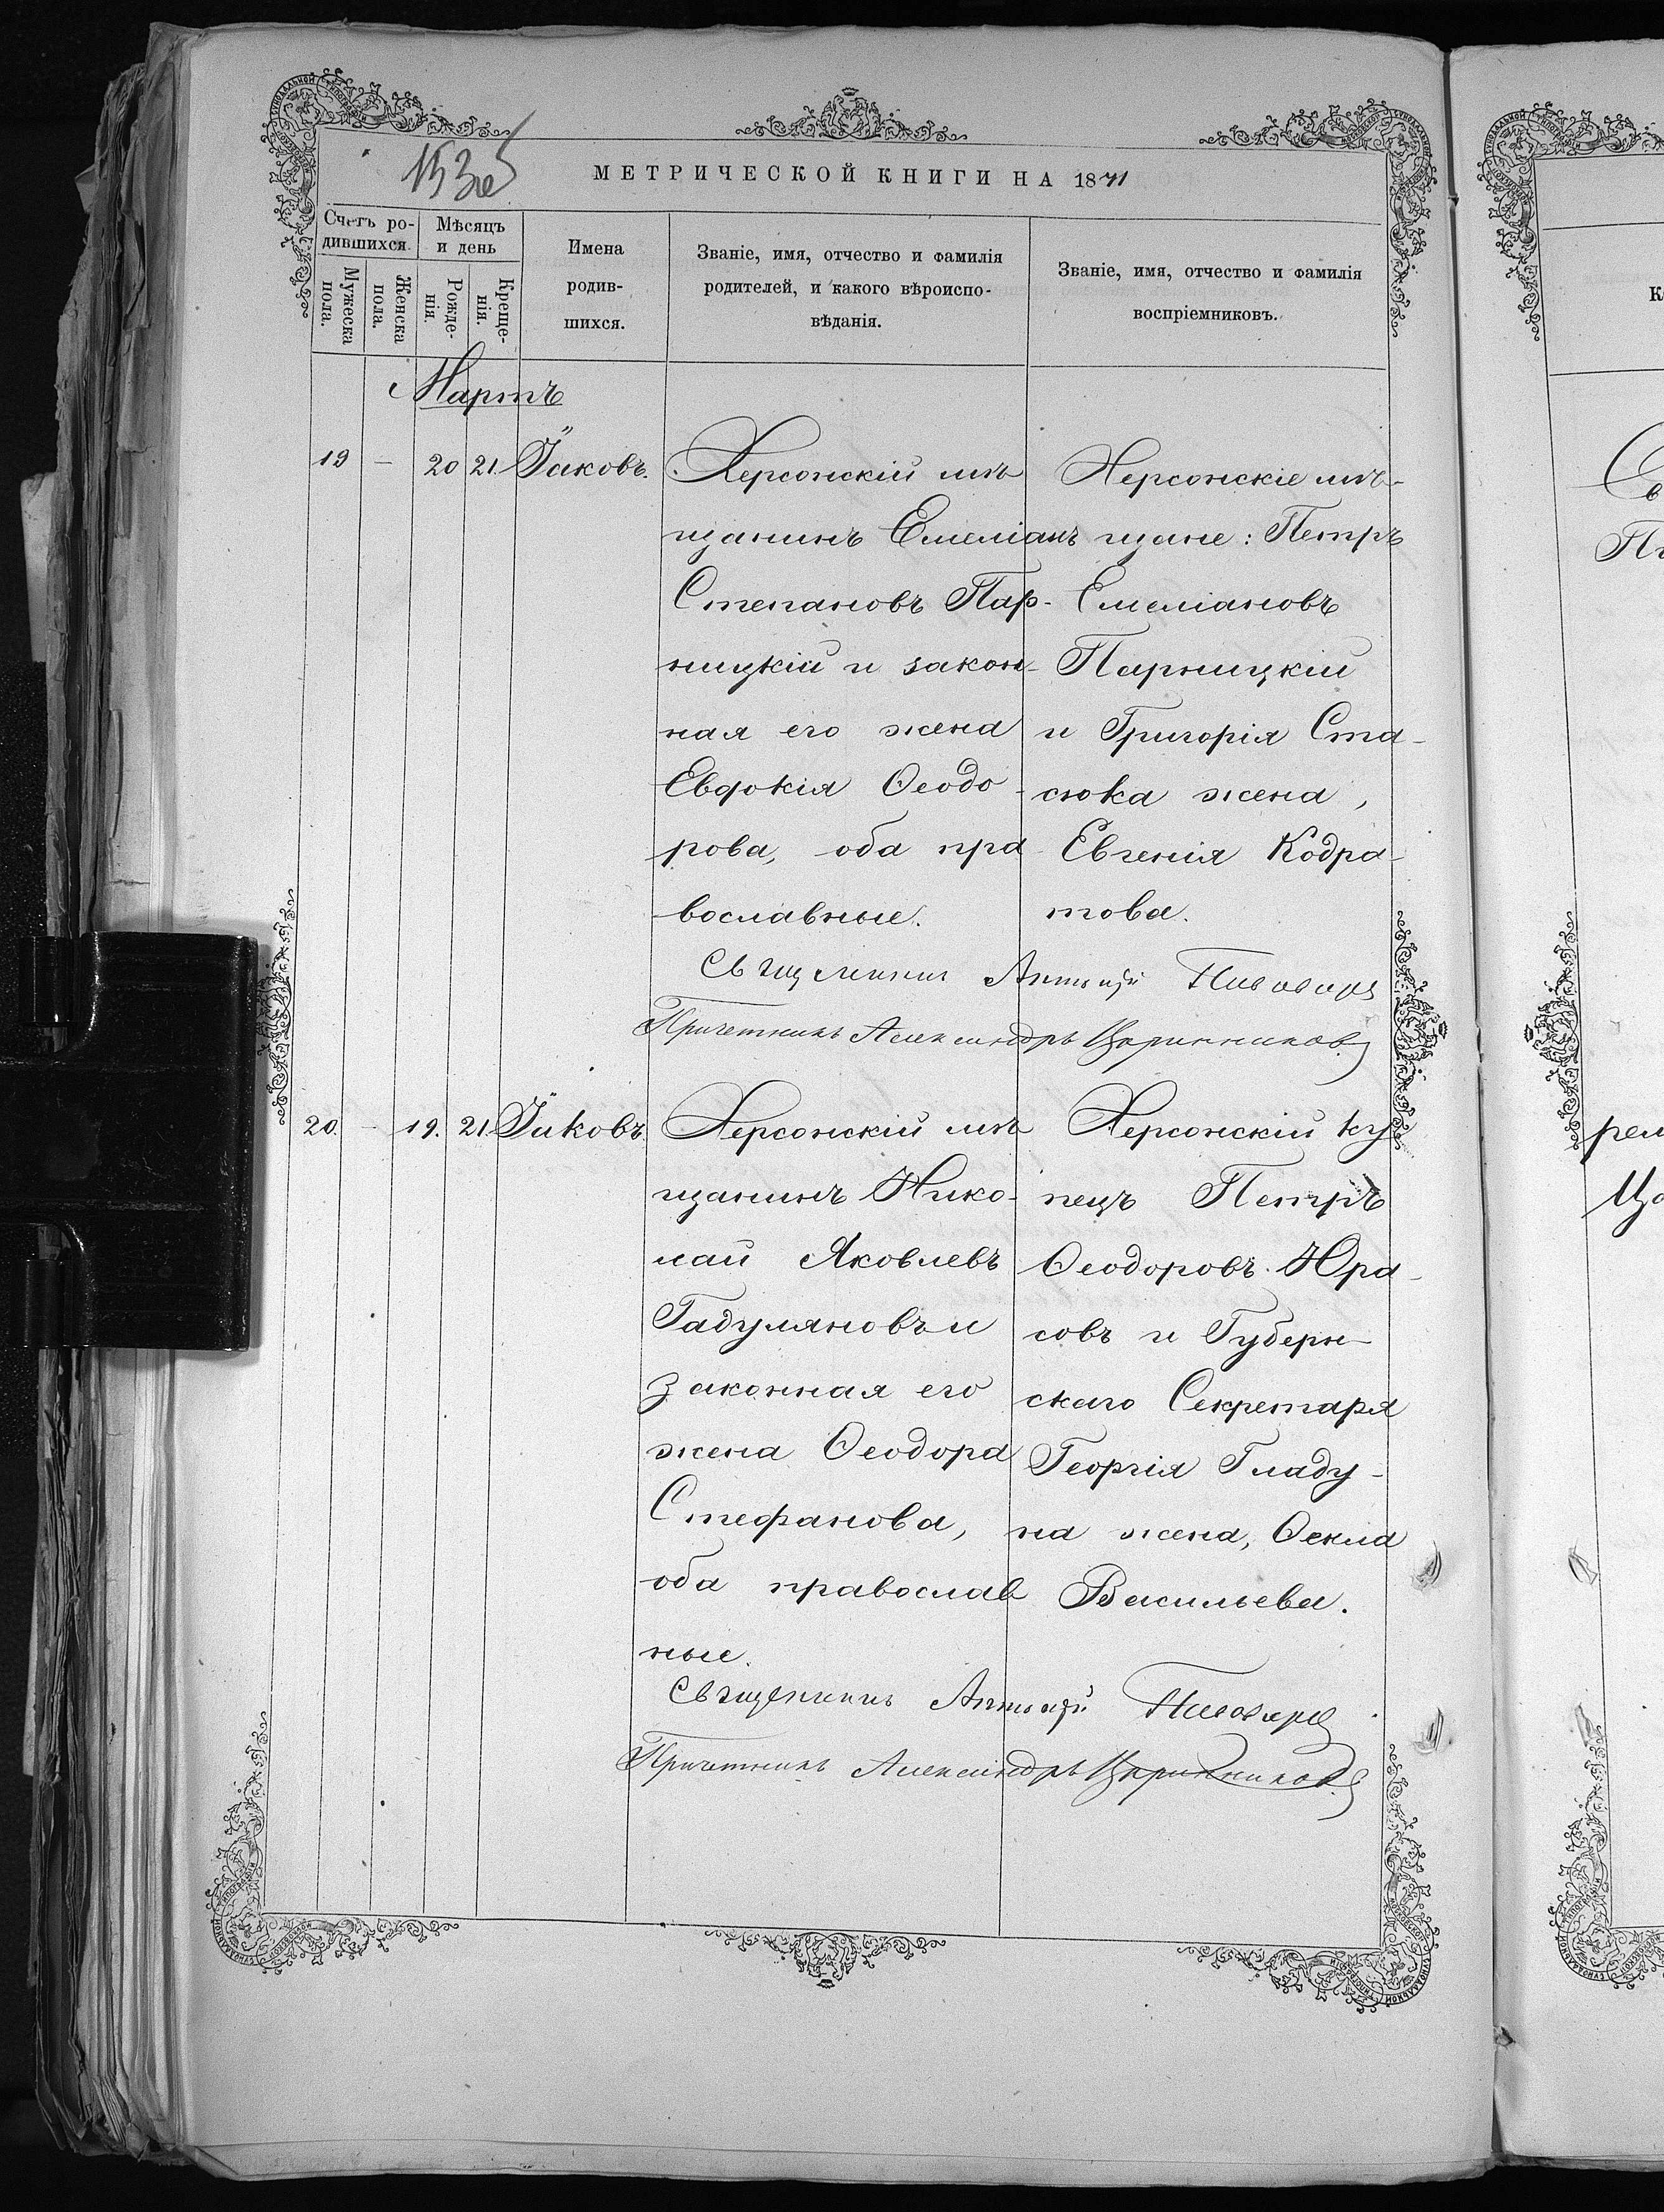 МЕТРИЧЕСКОЙ КНИГИ НА 1871
Счетъ родившихся.
Мужеска пола.
Женска пола.
Мѣсяцъ и день
Рожденія.
Крещенія.
Имена родившихся.
Званіе, имя, отчество и фамилія
родителей, и какого вѣроиспо-
вѣданія.
Званіе, имя, отчество и фамилія
воспріемниковъ.
Мартъ
19 – 20 21 Іаковъ.
Херсонскій мѣ
щанинъ Емеліанъ
Степановъ Пар-
ницкій и закон-
ная его жена
Евдокія Ѳеодо-
рова, оба пра-
вославные.
Херсонскіе мѣ-
щане: Петръ
Емеліановъ
Парницкій
и Григорія Ста-
сюка жена,
Евгенія Кодра-
това.
Священникъ Антоній Пивоваръ
Причетникъ Александръ
20. – 19. 21 Іаковъ.
Херсонскій мѣ
щанинъ Нико-
лай Яковлевъ
Гадуляновъ и
законная его
жена Ѳеодора
Стефанова,
оба православ
ные.
Херсонскій ку
пецъ Петръ
Ѳеодоровъ Юра-
совъ и Губерн-
скаго Секретаря
Георгія Гладу-
на жена, Ѳекла
Васильева.
Священникъ Антоній Пивоваръ
Причетникъ Александръ